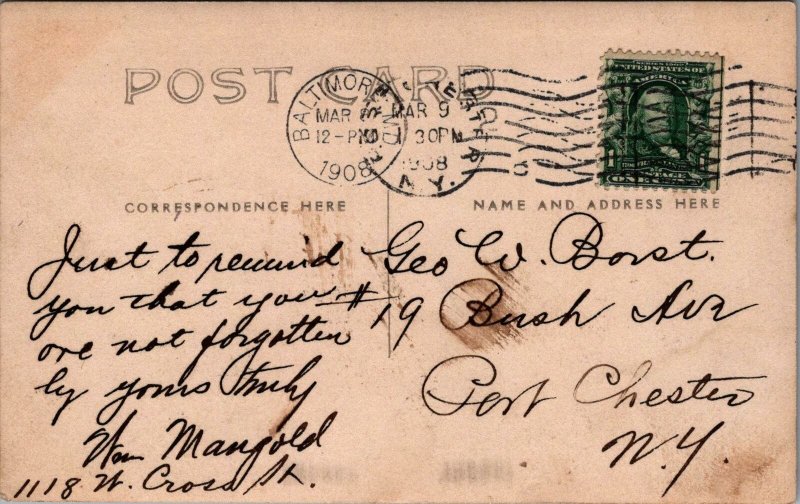 POST CARD
BALTIMORE, MD.
MAR
12-PM
1908
PORT CHESTER
MAR 9
1 30PM
1908
N.Y.
SERIES 1902
UNITED STATES OF
AMERICA
POSTAGE
CORRESPONDENCE HERE
NAME AND ADDRESS HERE
Just to remind
you that you
are not forgotten
by yours truly
Wm Mangold
1118 W. Cross St.
Geo W. Borst.
#19 Bush Ave
Port Chester
N.Y.